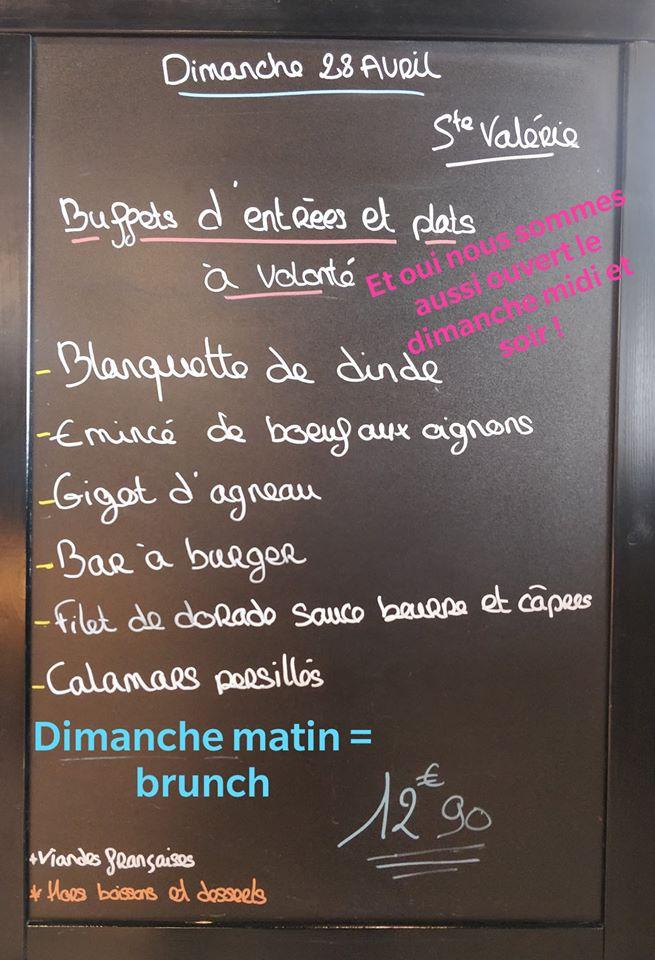 Dimanche 28 Avril
Ste Valérie
Buffets d'entrées et plats
à volonté
Et oui nous sommes
aussi ouvert le
dimanche midi et
soir !
- Blanquette de dinde
- Emincé de boeuf aux oignons
- Gigot d'agneau
- Bar à burger
- Filet de dorade sauce beurre et câpres
- Calamars persillés
Dimanche matin =
brunch
12€90
+ Viandes françaises
* Hors boissons et desserts